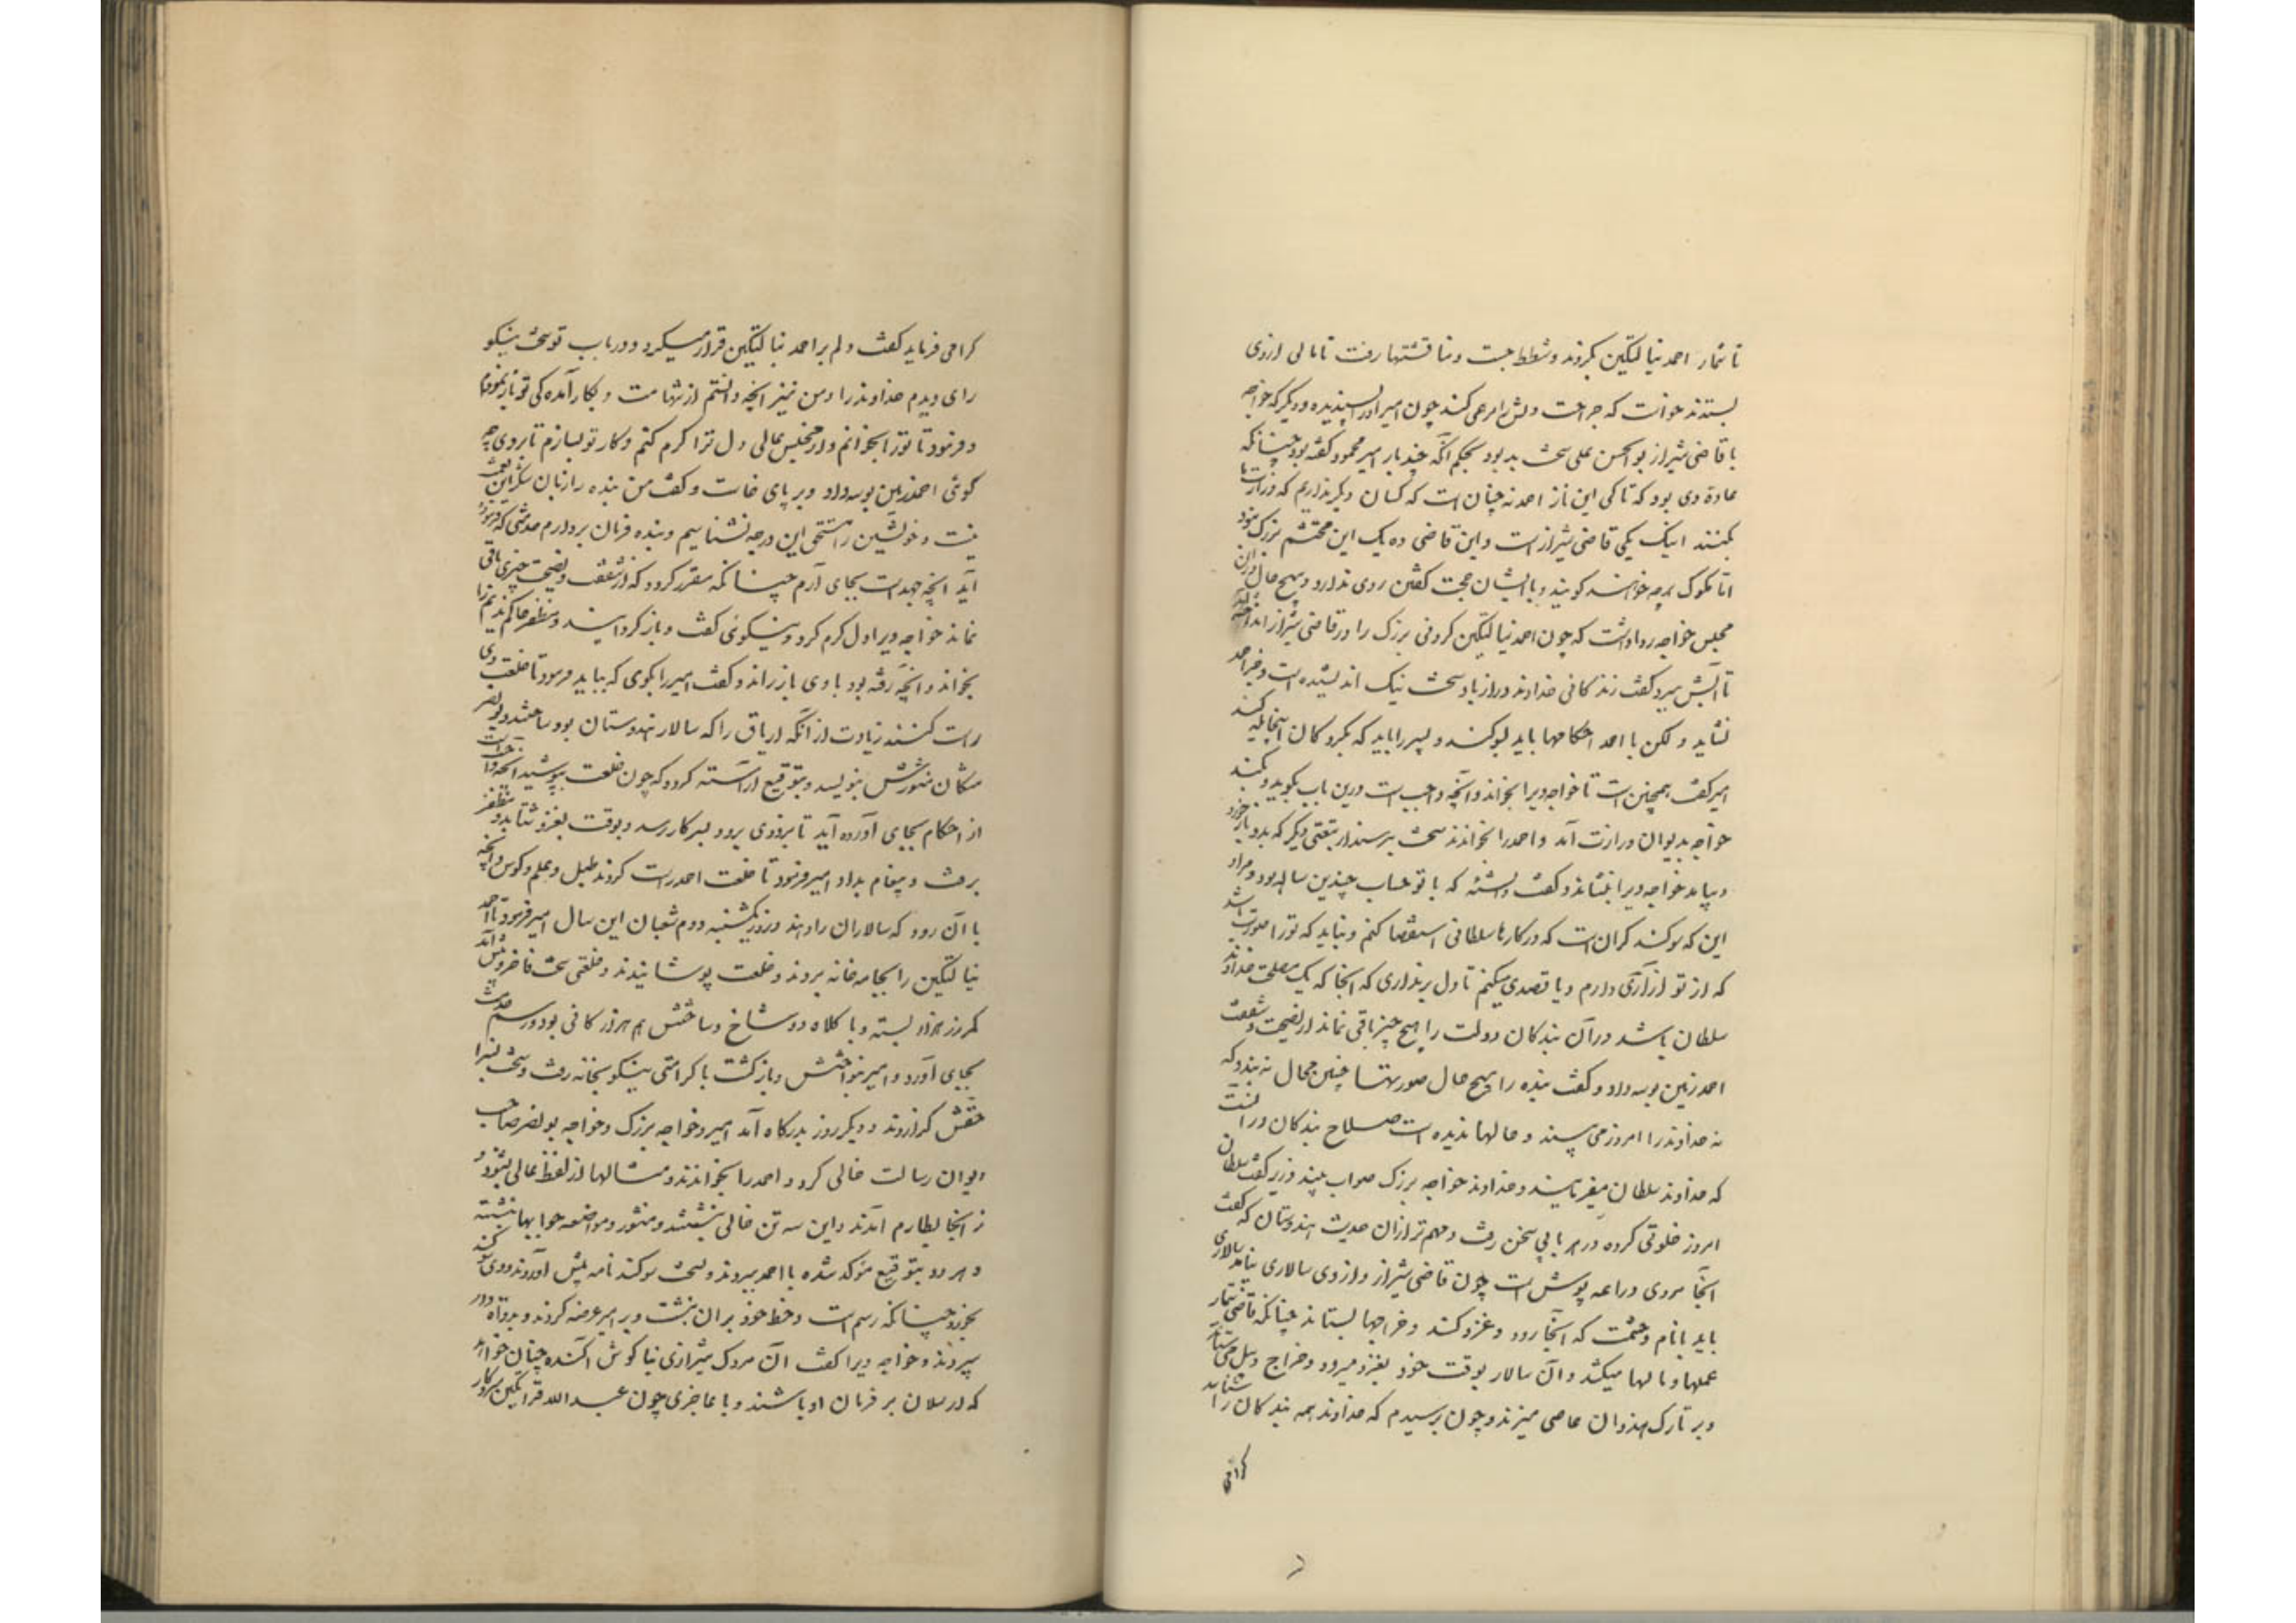 تا نمار احمد نیالتکین بکردند و شطط جست و مناقشتها رفت تا مالی از وی
بستدند خواست که جراحت دلش را مرهمی کند چون امیر او را پسندیده و دیگر که خواجه
با قاضی شیراز بوالحسن علی سخت بد بود بحکم آنکه چند بار امیر محمود گفته بود چنانکه
عادة وی بود که تا کی این ناز احمد نه چنان است که کسان دیگر نداریم که وزارت ما
بکنند اینک یکی قاضی شیراز است و این قاضی ده یک این محتشم بزرگ نبود
اما ملوک هرچه خواهند گویند و با ایشان حجت گفتن روی ندارد و بهیچ حال درین
مجلس خواجه روا داشت که چون احمد نیالتکین گردنی بزرگ را در قاضی شیراز اندازد
تا آبش ببرد گفت زندگانی خداوند دراز باد سخت نیک اندیشیده است و جز احمد
نشاید ولکن با احمد احکامها باید بسوگند و پسر را باید که بگروگان اینجا یله کند
امیر گفت همچنین است تا خواجه ویرا بخواند و آنچه واجب است درین باب بگوید و بکند
خواجه بدیوان وزارت آمد و احمد را بخواندند سخت بترسید از تبعتی دیگر که بدو بازخورد
و بیامد خواجه ویرا بنشاند و گفت دانسته که با تو حساب چندین ساله بود و مراد
این که سوگند گران است که در کارها سلطانی استقصا کنم و نباید که تو را صورت باشد
که از تو آزاری دارم و یا قصدی میکنم تا دل بد نداری که آنجا که یک مصلحت خداوند
سلطان باشد در آن بندگان دولت را هیچ چیز باقی نماند از نصیحت و شفقت
احمد زمین بوسه داد و گفت بنده را بهیچ حال صورتها چنین محال نه بندد که
نه خداوند را امروز می بیند و حالها ندیده است صلاح بندگان در آنست
که خداوند سلطان میفرمایند و خداوند خواجه بزرگ صواب بیند وزیر گفت سلطان
امروز خلوتی کرده در هر بابی سخن رفت و مهم تر از آن حدیث هندوستان که گفت
آنجا مردی دراعه پوش است چون قاضی شیراز و از وی سالاری نیاید سالاری
باید با نام و حشمت که آنجا رود و غزو کند و خراجها بستاند چنانکه قاضی تیمار
عملها و مالها میکشد و آن سالار بوقت خود بغزو میرود و خراج و پیل می ستاند
و بر تارک هندوان عاصی میزند و چون پرسیدم که خداوند همه بندگان را شناسد
کرامی
کرامی فرماید گفت دلم بر احمد نیالتکین قرار میگیرد و در باب تو سخت نیکو
رای دیدم خداوند را و من نیز آنچه دانستم از شهامت و بکار آمدگی تو باز نمودم
و فرمود تا تو را بخوانم و از مجلس عالی دل ترا گرم کنم و کار تو بسازم تا بروی چه
گوئی احمد زمین بوسه داد و بر پای خاست و گفت من بنده را زبان شکر این نعمت
نیست و خویشتن را مستحق این درجه نشناسیم و بنده فرمان بردارم خدمتی که فرموده
آید آنچه جهد است بجای آرم چنانکه مقرر گردد که از شفقت و نصیحت چیزی باقی
نماند خواجه ویرا دل گرم کرد و نیکوئی گفت و باز گردانید و مظفر حاکم ندیم را
بخواند و آنچه رفته بود با وی باز راند و گفت امیر را بگوی که بباید فرمود تا خلعت وی
راست کنند زیادت از آنکه اریاق را که سالار هندوستان بود ساختند و بونصر
مشکان منشورش بنویسد و بتوقیع آراسته گردد که چون خلعت بپوشید آنچه واجب است
از احکام بجای آورده آید تا بزودی برود و بسر کار رسد و بوقت بغزو شتابد و مظفر
برفت و پیغام بداد امیر فرمود تا خلعت احمد راست کردند طبل و علم و کوس و آنچه
با آن رود که سالاران را دهند و روز یکشنبه دوم شعبان این سال امیر فرمود تا احمد
نیالتکین را بجامه خانه بردند و خلعت پوشانیدند و خلعتی سخت فاخر و پیش آمد
کمر زر هزار بسته و با کلاه دو شاخ و ساختش هم هزار کانی بود و رسم خدمت
بجای آورد و امیر بنواختش و بازگشت با کرامتی نیکو بخانه رفت و سخت بسزا
حقش گزاردند و دیگر روز بدرگاه آمد امیر و خواجه بزرگ و خواجه بونصر صاحب
دیوان رسالت خالی کرد و احمد را بخواندند و مثالها از لفظ عالی بشنود و
ز آنجا بطارم آمدند و این سه تن خالی بنشستند و منشور و مواضعه جوابها نبشته
و هر دو بتوقیع مؤکد شده با احمد ببردند و نسخت سوگند نامه پیش آوردند و وی سوگند
بخورد چنانکه رسم است و خط خود بر آن نبشت و بر امیر عرضه کردند و بدواة دار
سپردند و خواجه ویرا گفت آن مردک شیرازی بناگوش آکنده چنان خواهد
که ارسلان بر فرمان او باشند و با عاجزی چون عبد الله قراتکین سر و کار